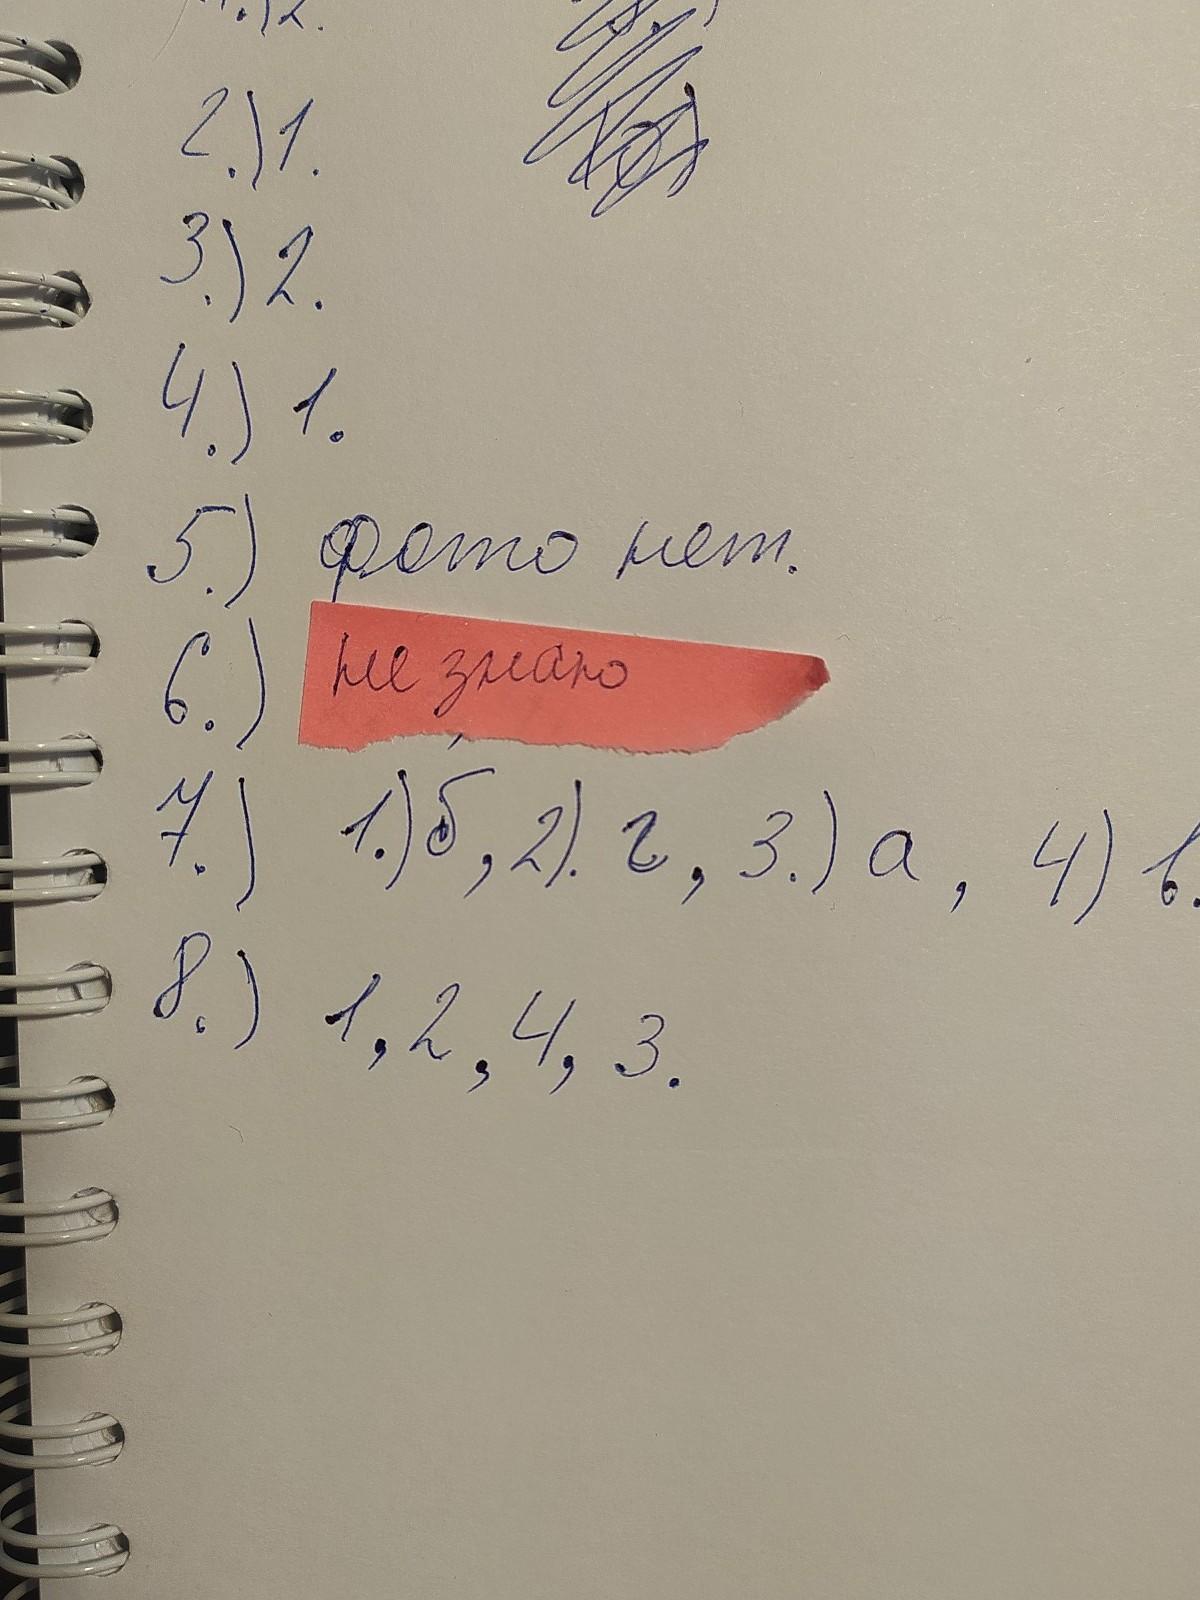 1.) 2.
2.) 1.
3.) 2.
4.) 1.
5.) фото нет.
6.) не знаю
7.) 1.) б, 2). г, 3.) а, 4) в.
8.) 1, 2, 4, 3.